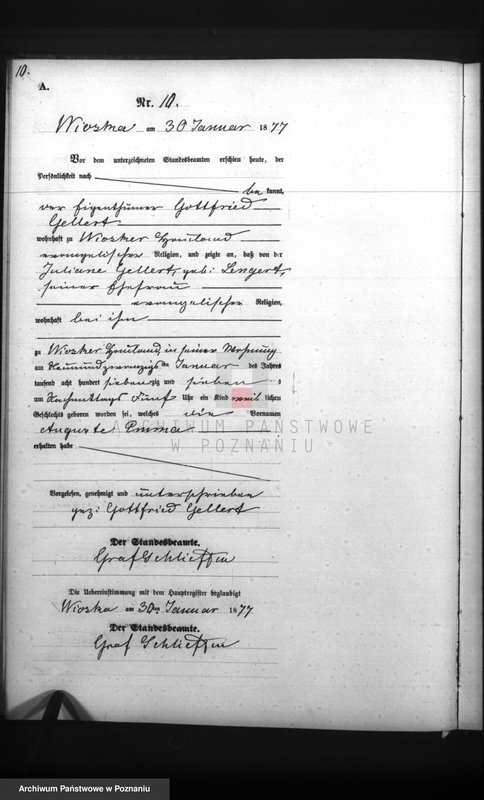 10.
A.
Nr. 10.
Wioska am 30 Januar 1877
Vor dem unterzeichneten Standesbeamten erschien heute, der
Persönlichkeit nach
bekannt,
der Eigenthümer Gottfried
Gellert
wohnhaft zu Wiosker Hauland
evangelischer Religion, und zeigte an, daß von der
Juliane Gellert, geb: Lengert,
seiner Ehefrau
evangelischer Religion,
wohnhaft bei ihm
zu Wiosker Hauland, in seiner Wohnung
am Neunundzwanzigsten Januar des Jahres
tausend acht hundert siebenzig und sieben
um Nachmittags Fünf Uhr ein Kind weiblichen
Geschlechts geboren worden sei, welches die Vornamen
Auguste Emma
erhalten habe
Vorgelesen, genehmigt und unterschrieben
gez: Gottfried Gellert
Der Standesbeamte.
Graf Schlieffen
Die Uebereinstimmung mit dem Hauptregister beglaubigt
Wioska am 30ten Januar 1877
Der Standesbeamte.
Graf Schlieffen
ARCHIWUM PAŃSTWOWE
W POZNANIU
Archiwum Państwowe w Poznaniu